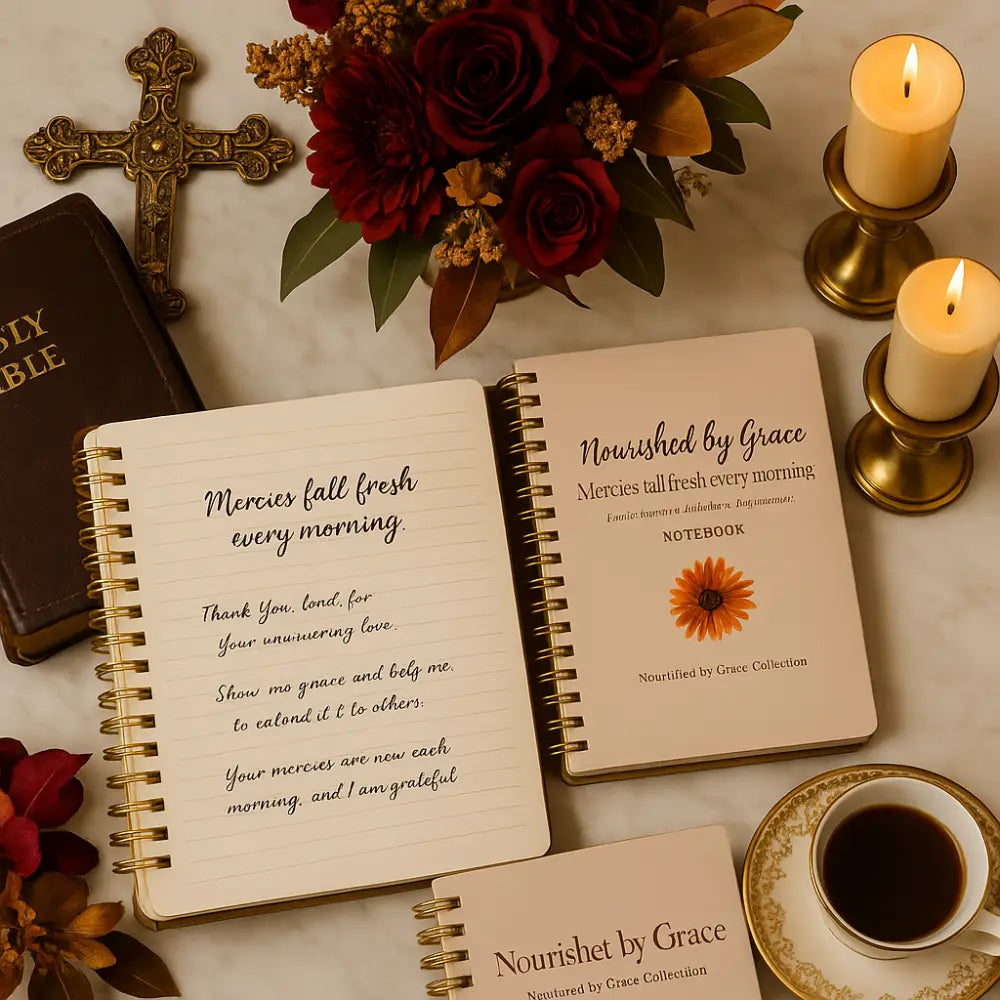 HOLY
BIBLE
Mercies fall fresh
every morning.
Thank You, lond, for
Your love.
Show mo gnace and belp me.
to ealond it t to others:
Your mercies are now each
morning, and I am grateful
Nourished by Grace
Mercies tall fresh every morning
NOTEBOOK
Nourtified by Grace Collection
Nourishet by Grace
Neutured by Grace Collection